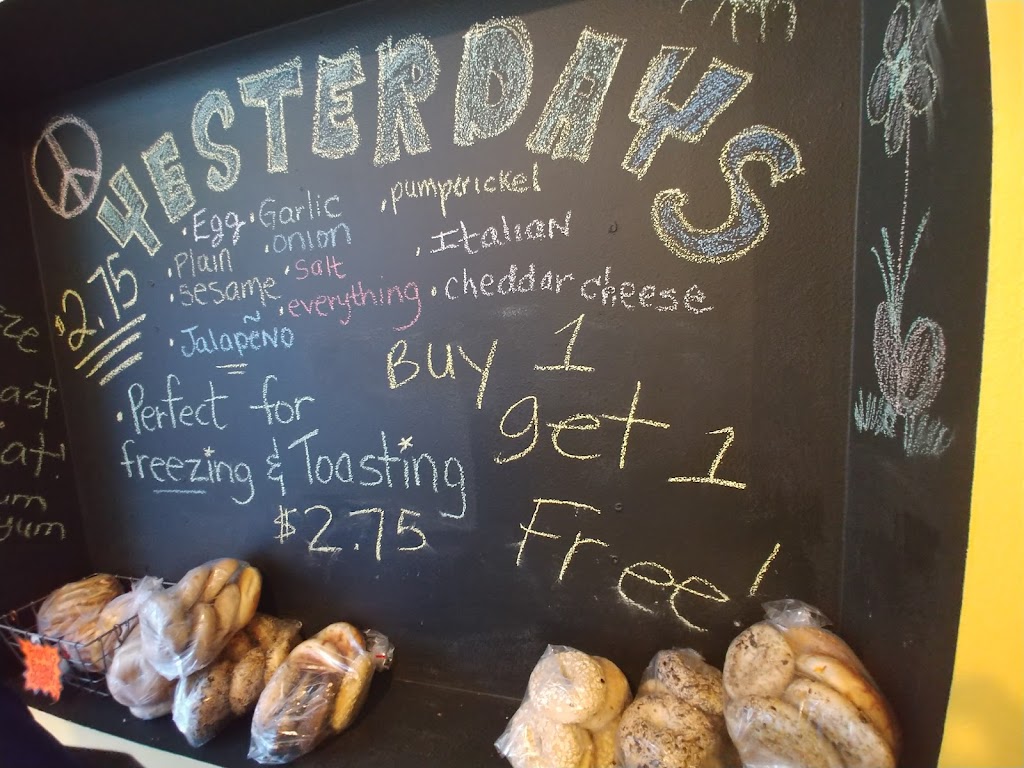 YESTERDAYS
$2.75
·Egg ·Garlic ·pumperickel
·Plain ·onion ·Italian
·Sesame ·Salt ·cheddar cheese
·Jalapeño ·everything
Buy 1
get 1
Free!
·Perfect for
freezing & Toasting
$2.75
ast
at!
um
yum